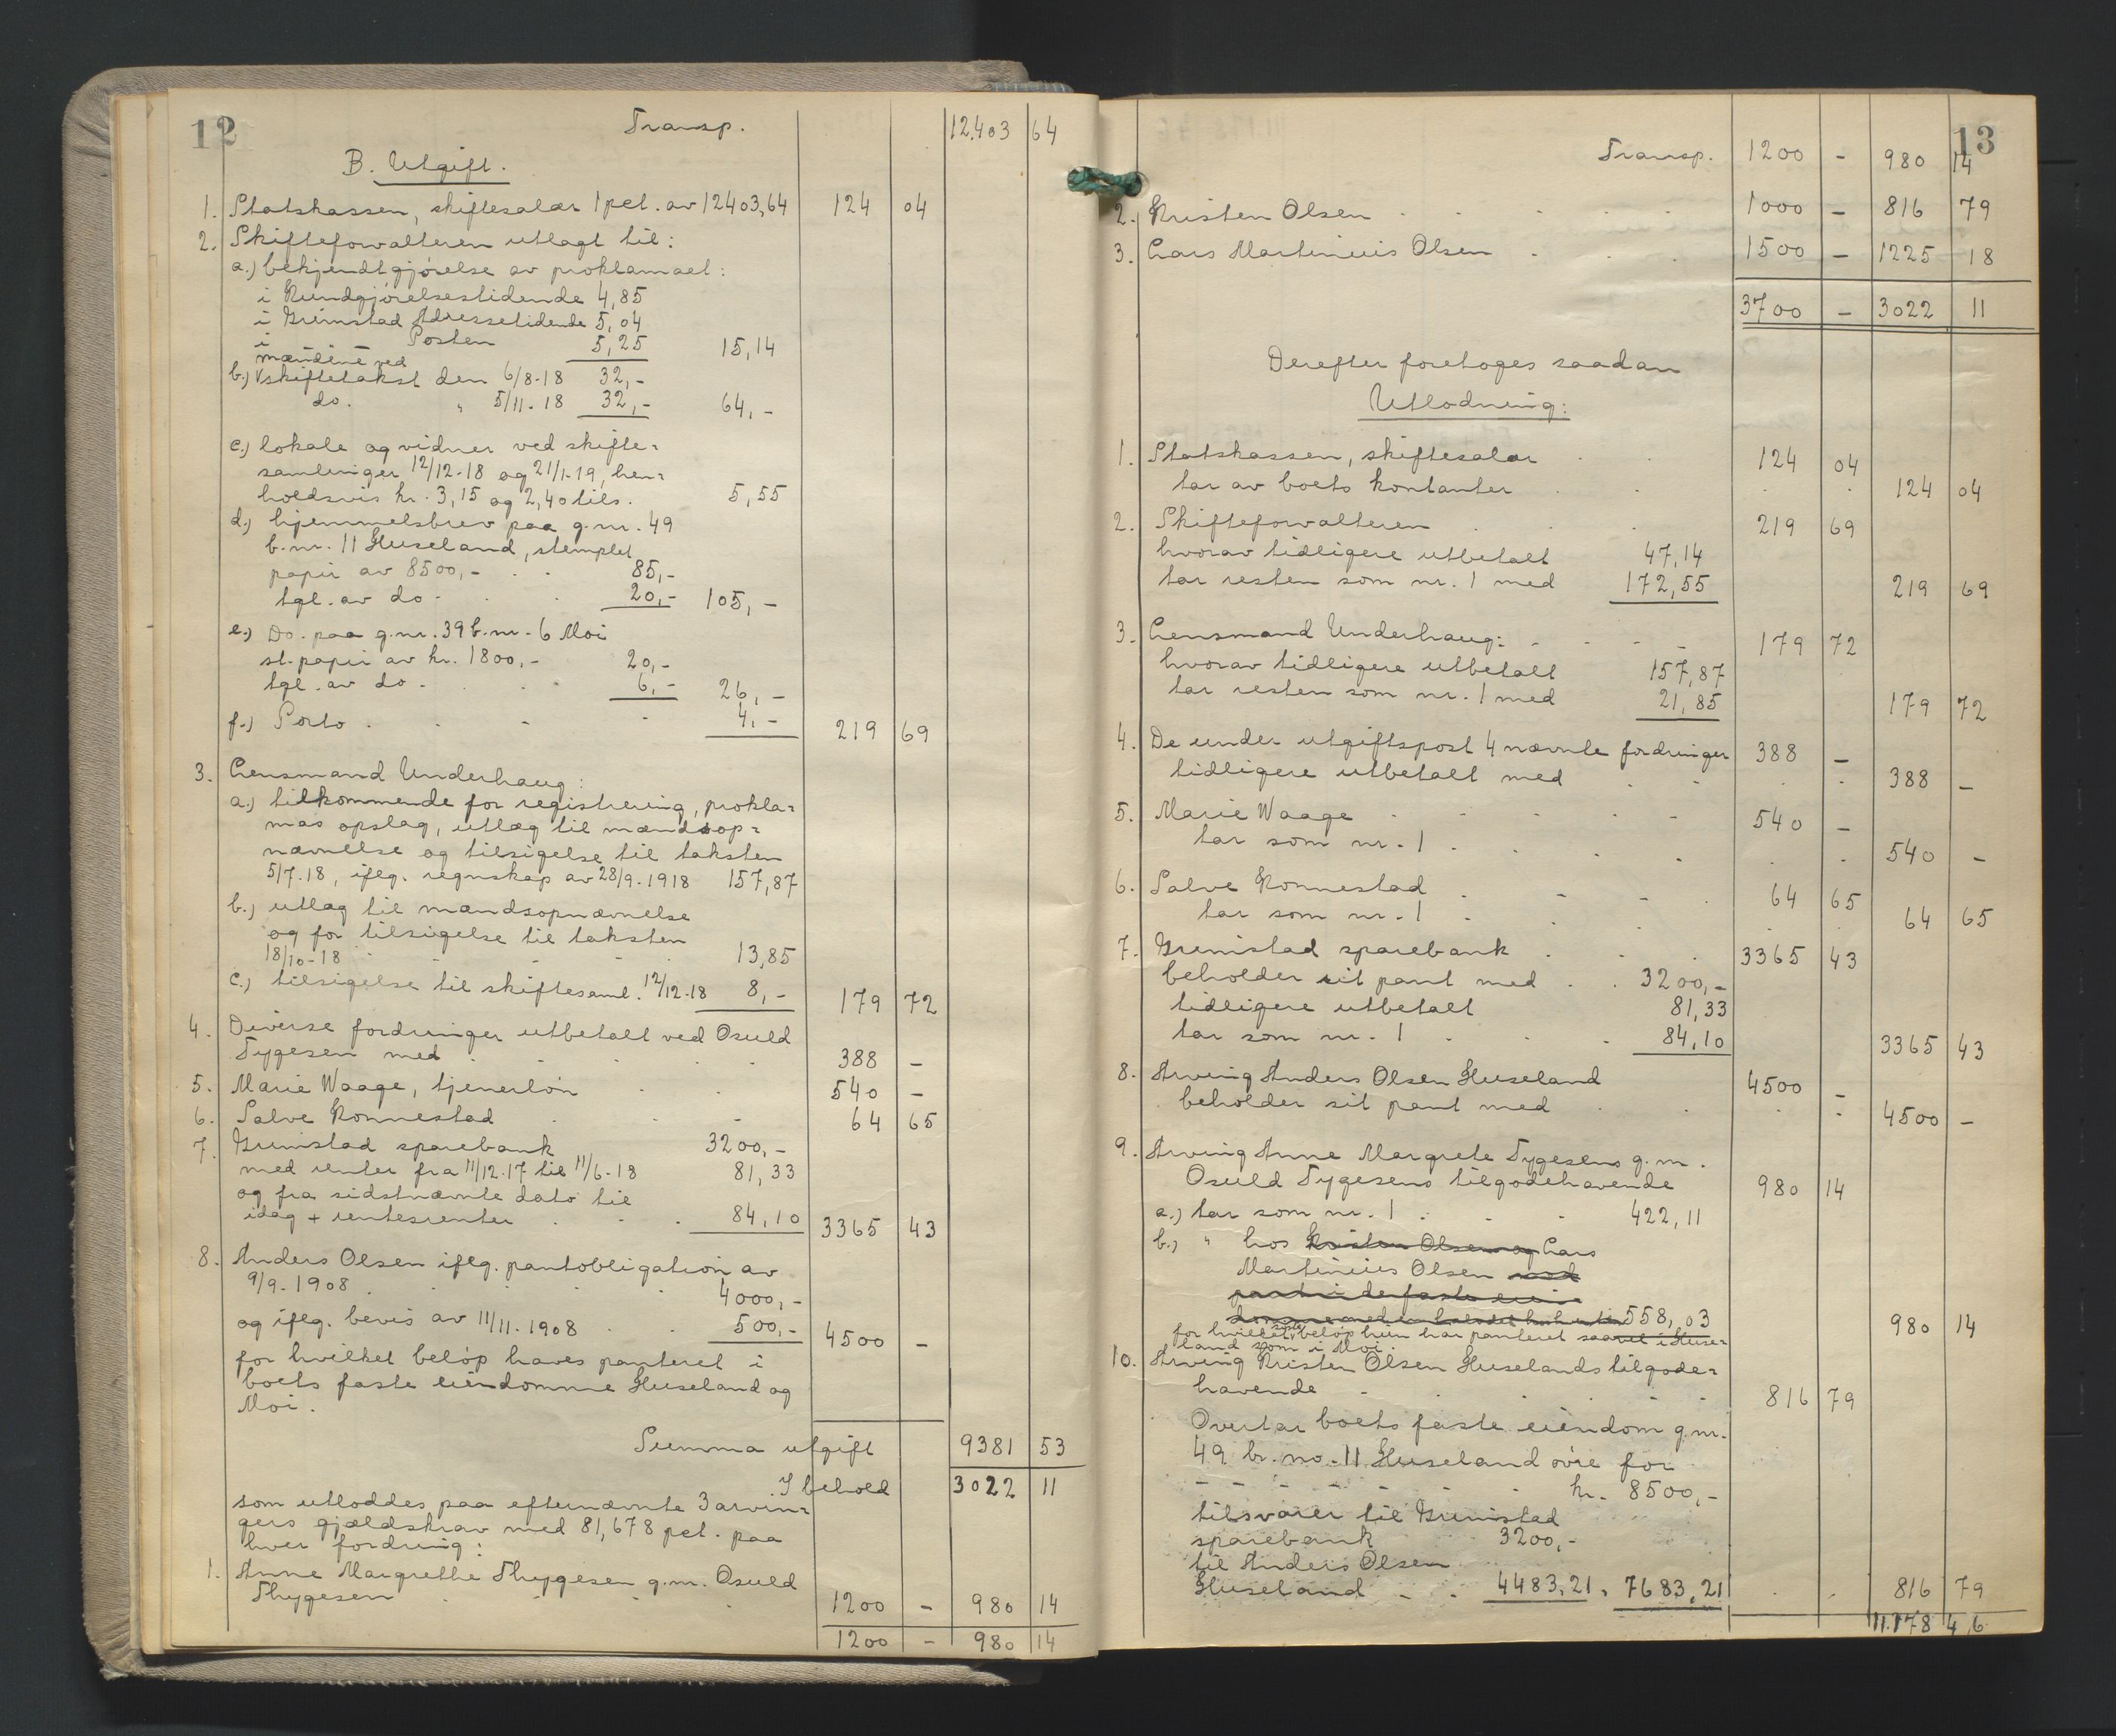 12
Transp. 12.403 64
B. Utgift.
1. Statskassen, skiftesalær 1 pct. av 12403,64 124 04
2. Skifteforvalteren utlagt til:
a.) bekjendtgjørelse av proklamaet:
i Kundgjørelsestidende 4,85
i Grimstad Adressetidende 5,04
i — Posten 5,25 15,14
mændene ved
b.) skiftetakst den 6/8-18 32,-
do. " 5/11-18 32,- 64,-
c.) lokale og vidner ved skifte=
samlinger 12/12-18 og 21/1-19, hen=
holdsvis kr. 3,15 og 2,40 tils. 5,55
d.) hjemmelsbrev paa g.nr. 49
b.nr. 11 Huseland, stemplet
papir av 8500,- 85,-
tgl. av do. 20,- 105,-
e.) Do. paa g.nr. 39 b.nr. 6 Moi
st.papir av kr. 1800,- 20,-
tgl. av do. 6,- 26,-
f.) Porto 4,- 219 69
3. Lensmand Underhaug:
a.) tilkommende for registrering, prokla=
mas opslag, utlæg til mændsop=
nævnelse og tilsigelse til taksten
5/7-18, ifløg. regnskap av 28/9-1918 157,87
b.) utlæg til mændsopnævnelse
og for tilsigelse til taksten
18/10-18 13,85
c.) tilsigelse til skiftesaml. 12/12-18 8,- 179 72
4. Diverse fordringer utbetalt ved Osuld
Tygesen med 388 -
5. Marie Waage, tjenerløn 540 -
6. Salve Rønnestad 64 65
7. Grimstad sparebank 3200,-
med renter fra 11/12-17 til 11/6-18 81,33
og fra sidstnævnte dato til
idag + rentesrenter 84,10 3365 43
8. Anders Olsen iflg. pantobligation av
9/9-1908 4000,-
og iflg. bevis av 11/11-1908 500,- 4500 -
for hvilket beløp haves panteret i
boets faste eiendomme Huseland og
Moi.
Summa utgift 9381 53
I behold 3022 11
som utloddes paa efternævnte 3 arvin=
gers gjældskrav med 81,678 pct. paa
hver fordring:
1. Anne Margrethe Thygesen g.m. Osuld
Thygesen 1200 - 980 14
1200 - 980 14
13
Transp. 1200 - 980 14
2. Kristen Olsen 1000 - 816 79
3. Lars Martinius Olsen 1500 - 1225 18
3700 - 3022 11
Derefter foretoges saadan
Utlodning:
1. Statskassen, skiftesalær 124 04
tar av boets kontanter 124 04
2. Skifteforvalteren 219 69
hvorav tidligere utbetalt 47,14
tar resten som nr. 1 med 172,55 219 69
3. Lensmand Underhaug: 179 72
hvorav tidligere utbetalt 157,87
tar resten som nr. 1 med 21,85 179 72
4. De under utgiftspost 4 nævnte fordringer 388 -
tidligere utbetalt med 388 -
5. Marie Waage 540 -
tar som nr. 1 540 -
6. Salve Rønnestad 64 65
tar som nr. 1 64 65
7. Grimstad sparebank 3365 43
beholder sit pant med 3200,-
tidligere utbetalt 81,33
tar som nr. 1 84,10 3365 43
8. Arving Anders Olsen Huseland 4500 -
beholder sit pant med 4500 -
9. Arving Anne Margrete Tygesens g.m.
Osuld Tygesens tilgodehavende 980 14
a.) tar som nr. 1 422,11
b.) " hos Kristen Olsen og Lars
Martinius Olsen mod
pant i de faste eien
558,03 980 14
for hvilket siste beløp hun har panteret saavel i Huse=
land som i Moi.
10. Arving Kristen Olsen Huselands tilgode=
havende 816 79
Overtar boets faste eiendom g.nr.
49 br.no. 11 Huseland øvre for
kr. 8500,-
tilsvarer til Grimstad
sparebank 3200,-
til Anders Olsen
Huseland 4483,21 " 7683,21 816 79
11.178 46